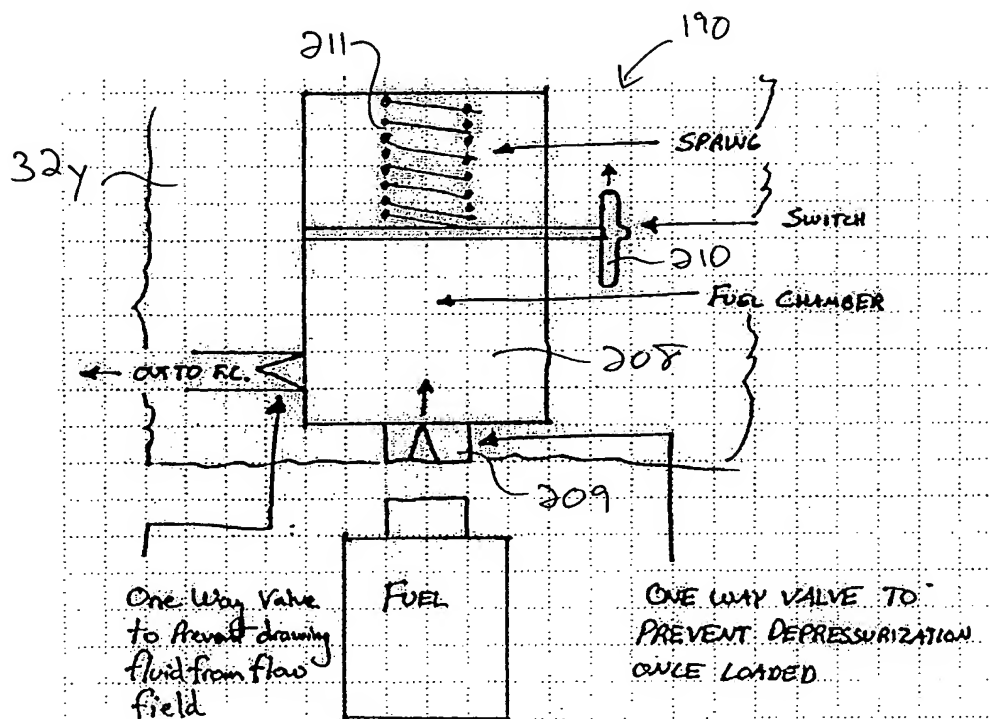 211
190
SPRING
32y
SWITCH
210
FUEL CHAMBER
208
OUT TO F.C.
209
FUEL
One Way Valve
to Prevent drawing
fluid from flow
field
ONE WAY VALVE TO
PREVENT DEPRESSURIZATION
ONCE LOADED